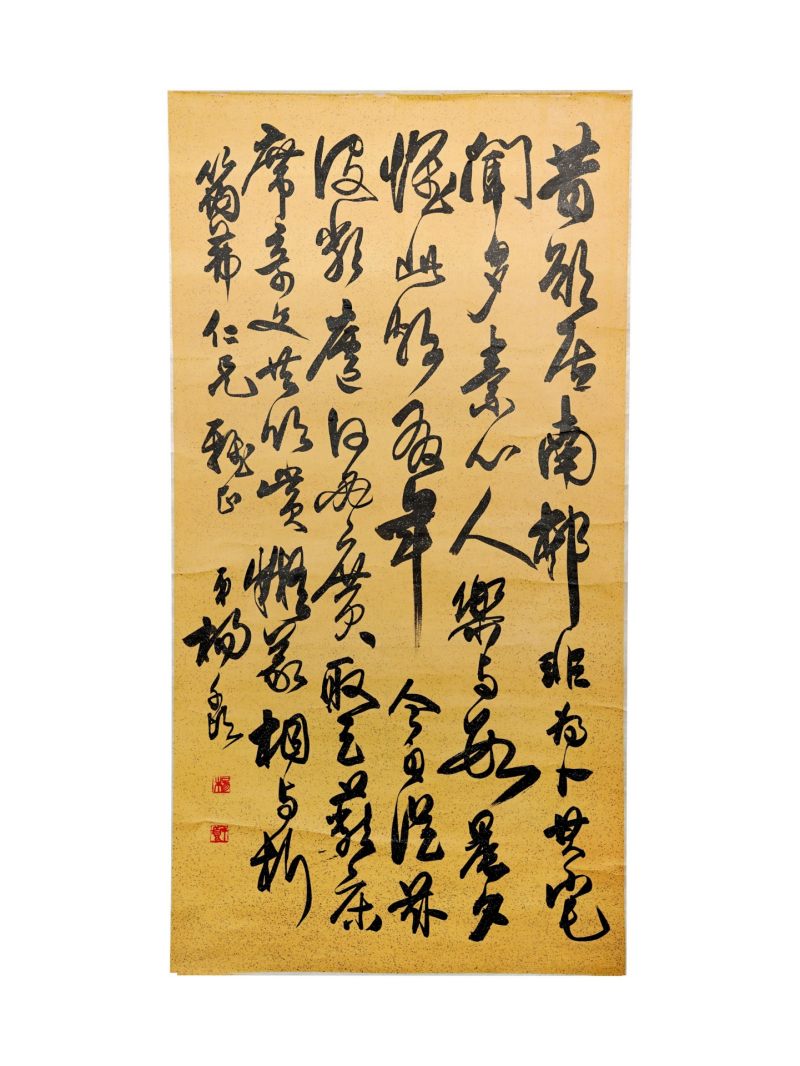 昔欲居南邨非為卜其宅
聞多素心人樂與數晨夕
懷此頗有年今日從茲
役敝廬何必廣取足蔽床
席奇文共欣賞疑義相與析
仁兄雅正 弟楊